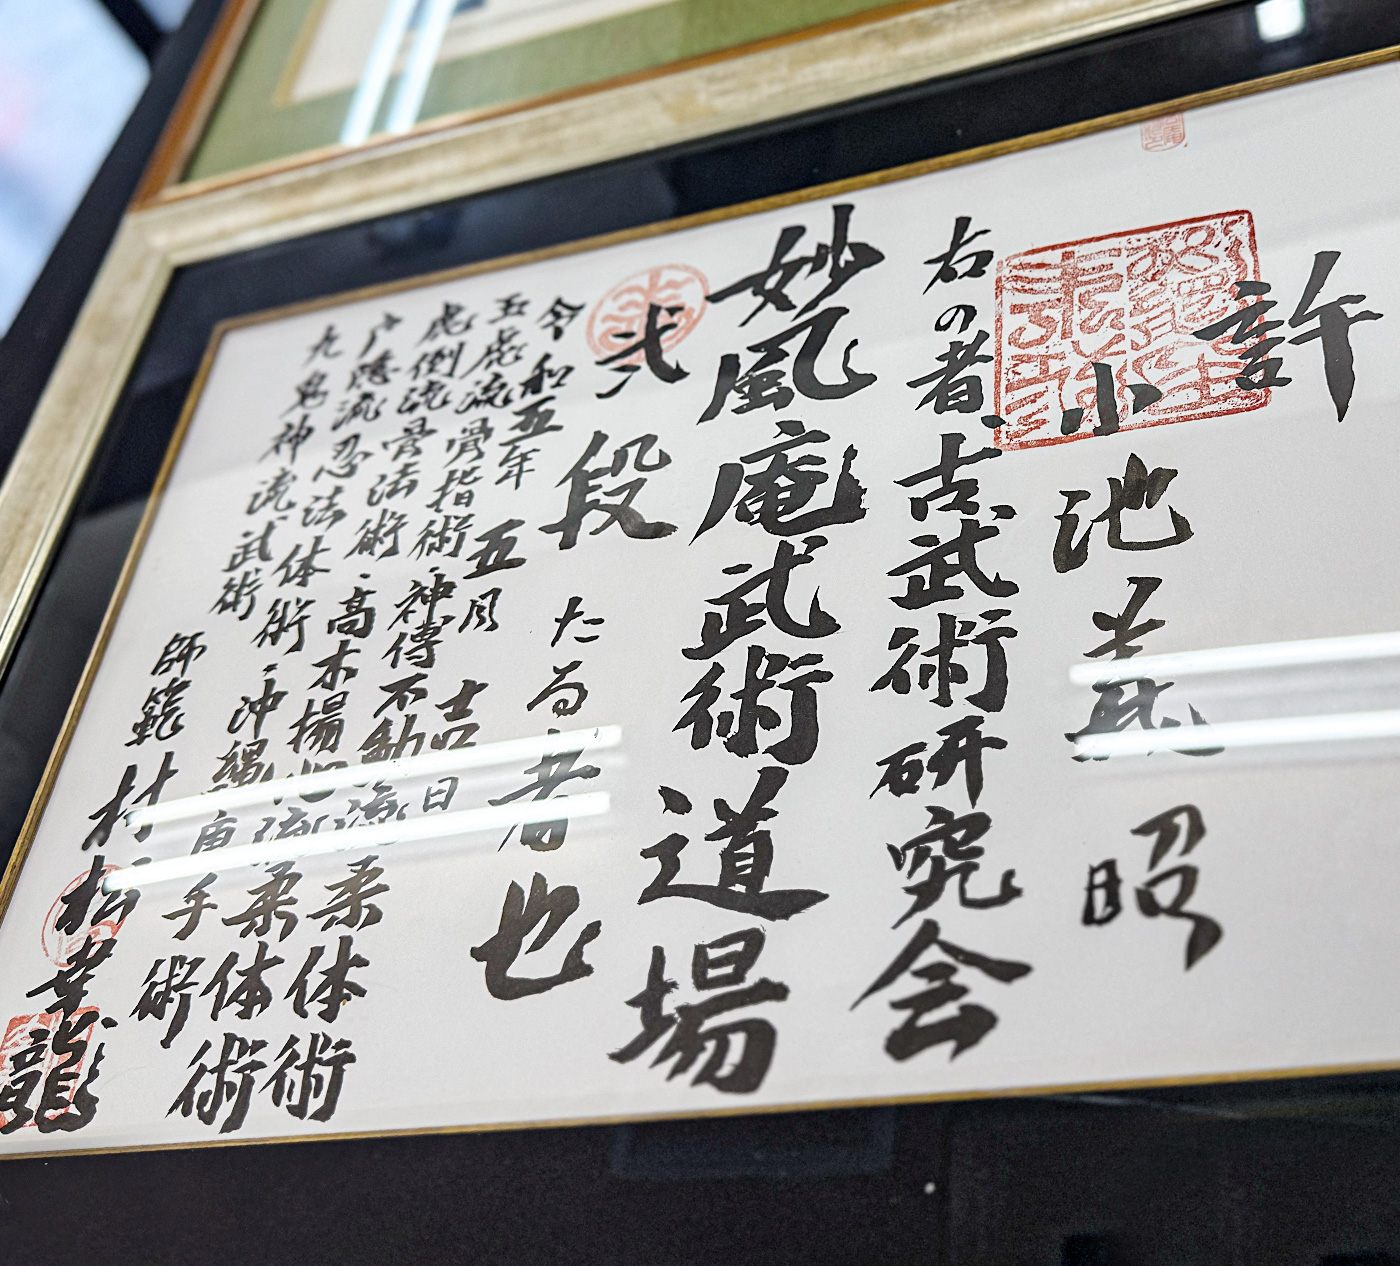 許
小池義昭
右の者、古武術研究会
妙風庵武術道場
弐段たる者也
令和五年五月吉日
五虎流骨指術・神傳不動流柔体術
虎倒流骨法術・高木揚心流柔体術
戸隠流忍法体術・沖縄唐手術
九鬼神流武術
師範村松幸龍